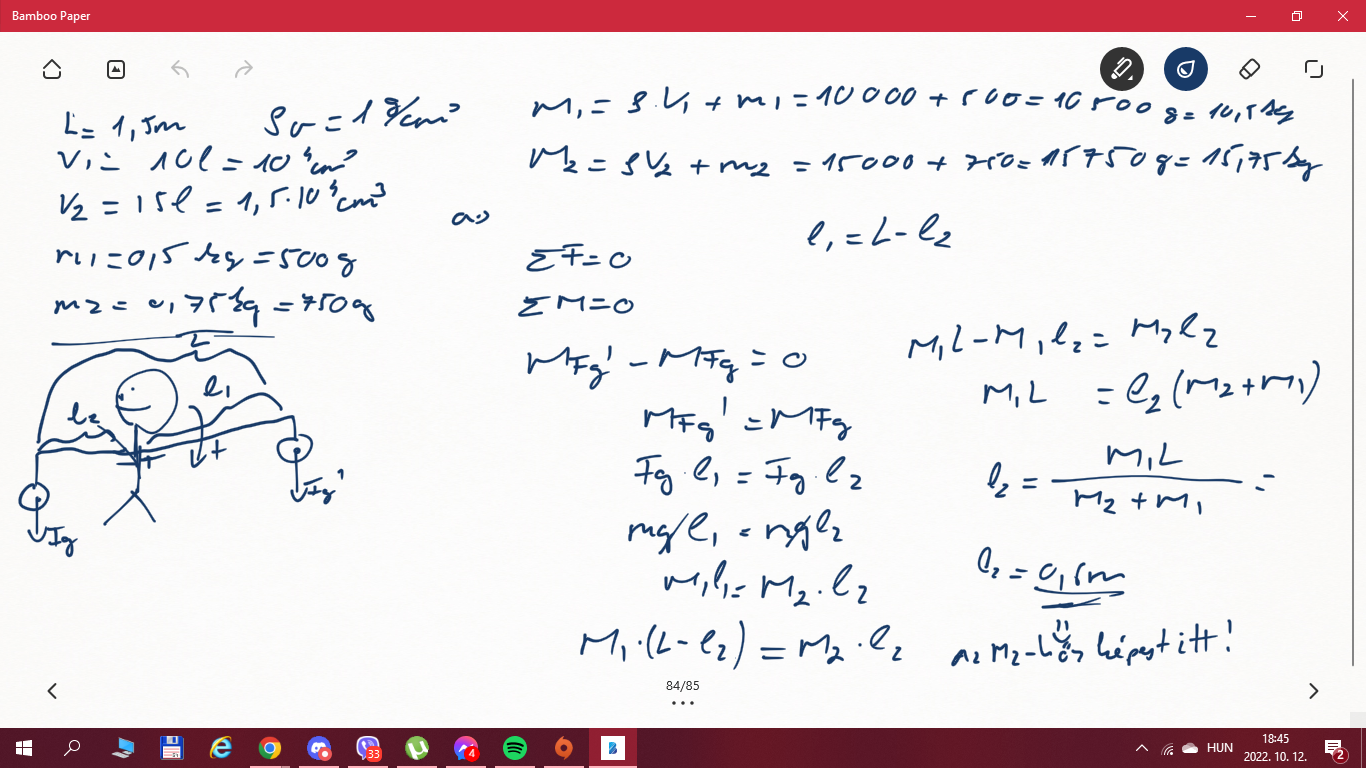 Bamboo Paper
L = 1,5m ρv = 1 g/cm³
V1 = 10l = 10⁴cm³
V2 = 15l = 1,5·10⁴cm³
m1 = 0,5 kg = 500g
m2 = 0,75kg = 750g
L
l1
l2
+
Fg
Fg'
M1 = ρ·V1 + m1 = 10000 + 500 = 10500 g = 10,5kg
M2 = ρV2 + m2 = 15000 + 750 = 15750g = 15,75kg
a)
ΣF=0
ΣM=0
MFg' - MFg = 0
MFg' = MFg
Fg·l1 = Fg·l2
mg l1 = mg l2
M1l1 = M2·l2
M1·(L-l2) = M2·l2
l1 = L-l2
M1L-M1l2 = M2l2
M1L = l2(M2+M1)
l2 = M1L / M2+M1 =
l2 = 0,6m
az M2-höz képest itt!
84/85
33
4
HUN
18:45
2022. 10. 12.
2